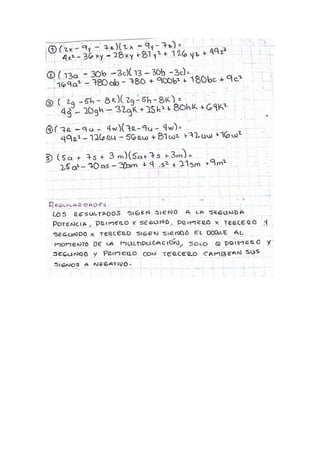 ① (2x - 9y - 7z)(2x - 9y - 7z) =
4x² - 36xy - 28xy + 81y² + 126yz + 49z²
② (13a - 30b - 3c)(13 - 30b - 3c) =
169a² - 780ab - 780 + 900b² + 180bc + 9c²
③ (2g - 5h - 8k)(2g - 5h - 8k) =
4g² - 20gh - 32gk + 25h² + 80hk + 64k²
④ (7e - 9u - 4w)(7e - 9u - 4w) =
49e² - 126eu - 56ew + 81w² + 72uw + 16w²
⑤ (5a + 7s + 3m)(5a + 7s + 3m) =
25a² - 70as - 30am + 9 s² + 21sm + 9m²
REGULARIDADES
LOS RESULTADOS SIGEN SIENO A LA SEGUNDA
POTENCIA, PRIMERO X SEGUNO, PRIMERO X TERCERO Y
SEGUNDO X TERCERO SIGEN SIENDO EL DOBLE AL
MOMENTO DE LA MULTIPLICACIÓN, SOLO Q PRIMERO Y
SEGUNDO Y PRIMERO CON TERCERO CAMBIAN SUS
SIGNOS A NEGATIVO.